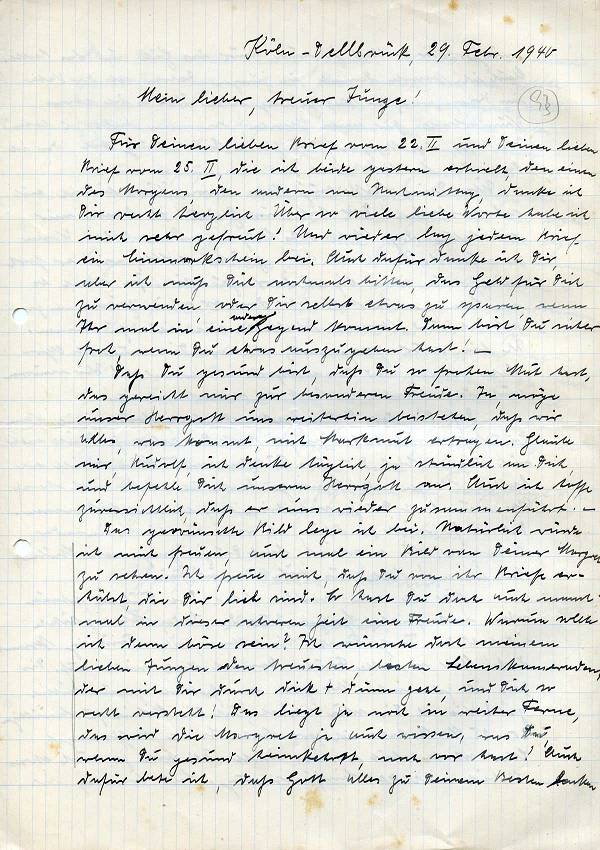 Köln-Dellbrück, 29. Febr. 1940
Mein lieber, treuer Junge!
33
Für Deinen lieben Brief vom 22. II und Deinen lieben
Brief vom 25. II, die ich beide gestern erhielt, den einen
des Morgens den andern am Nachmittag, danke ich
Dir recht herzlich. Über so viele liebe Worte habe ich
mich sehr gefreut! Und wieder lag jedem Brief
ein Einmarkschein bei. Auch dafür danke ich Dir,
aber ich muß Dich nochmals bitten, das Geld für Dich
zu verwenden oder Dir selbst etwas zu sparen wenn
Ihr mal in eine andere Gegend kommt. Dann bist Du sicher
froh, wenn Du etwas auszugeben hast! —
Daß Du gesund bist, daß Du so frohen Mut hast,
das gereicht mir zur besonderen Freude. Ja, möge
unser Herrgott uns weiterhin beistehen, daß wir
Alles, was kommt, mit Starkmut ertragen. Glaube
mir, Rudolf, ich denke täglich, ja stündlich an Dich
und befehle Dich unserem Herrgott an. Auch ich hoffe
zuversichtlich, daß er uns wieder zusammenführt. —
Das gewünschte Bild lege ich bei. Natürlich würde
ich mich freuen, auch mal ein Bild von Deiner Margret
zu sehen. Ich freue mich, daß Du von ihr Briefe er-
hältst, die Dir lieb sind. So hast Du doch auch manch-
mal in dieser schweren Zeit eine Freude. Warum sollte
ich denn böse sein? Ich wünsche doch meinem
lieben Jungen den treuesten, besten Lebenskameraden,
der mit Dir durch dick + dünn geht, und Dich so
recht versteht! Das liegt ja noch in weiter Ferne,
das wird die Margret ja auch wissen, was Du,
wenn Du gesund heimkehrst, noch vor hast! Auch
dafür bete ich, daß Gott Alles zu Deinem Besten lenken